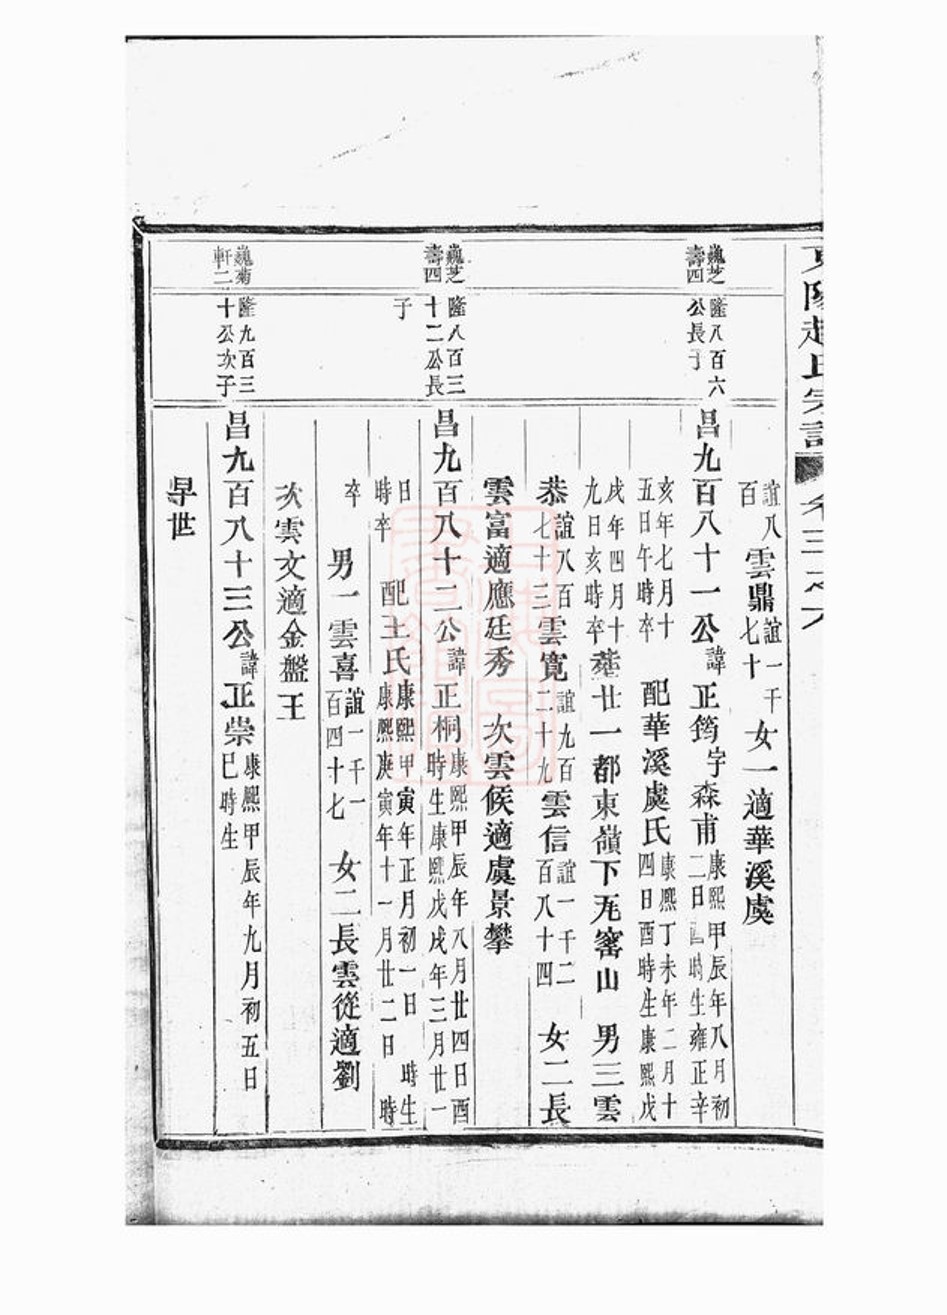 東陽趙氏宗譜 卷三之六
誼八百 雲鼎誼一千七十 女一適華溪虞
巍芝壽四 隆八百六公長子 昌九百八十一公諱正筠字森甫康熙甲辰年八月初二日酉時生雍正辛
亥年七月十五日午時卒 配華溪虞氏康熙丁未年二月十四日酉時生康熙戊
戌年四月十九日亥時卒 葬廿一都東嶺下旡窰山 男三雲
恭誼八百七十三雲寬誼九百二十九雲信誼一千二百八十四 女二長
雲富適應廷秀 次雲候適虞景攀
巍芝壽四 隆八百三十二公長子 昌九百八十二公諱正桐康熙甲辰年八月廿四日酉時生康熙戊戌年三月廿一
日時卒 配王氏康熙甲寅年正月初一日 時生康熙庚寅年十一月廿二日 時
卒 男一雲喜誼一千一百四十七 女二長雲從適劉
次雲文適金盤王
巍菊軒二 隆九百三十公次子 昌九百八十三公諱正崇康熙甲辰年九月初五日巳時生
早世